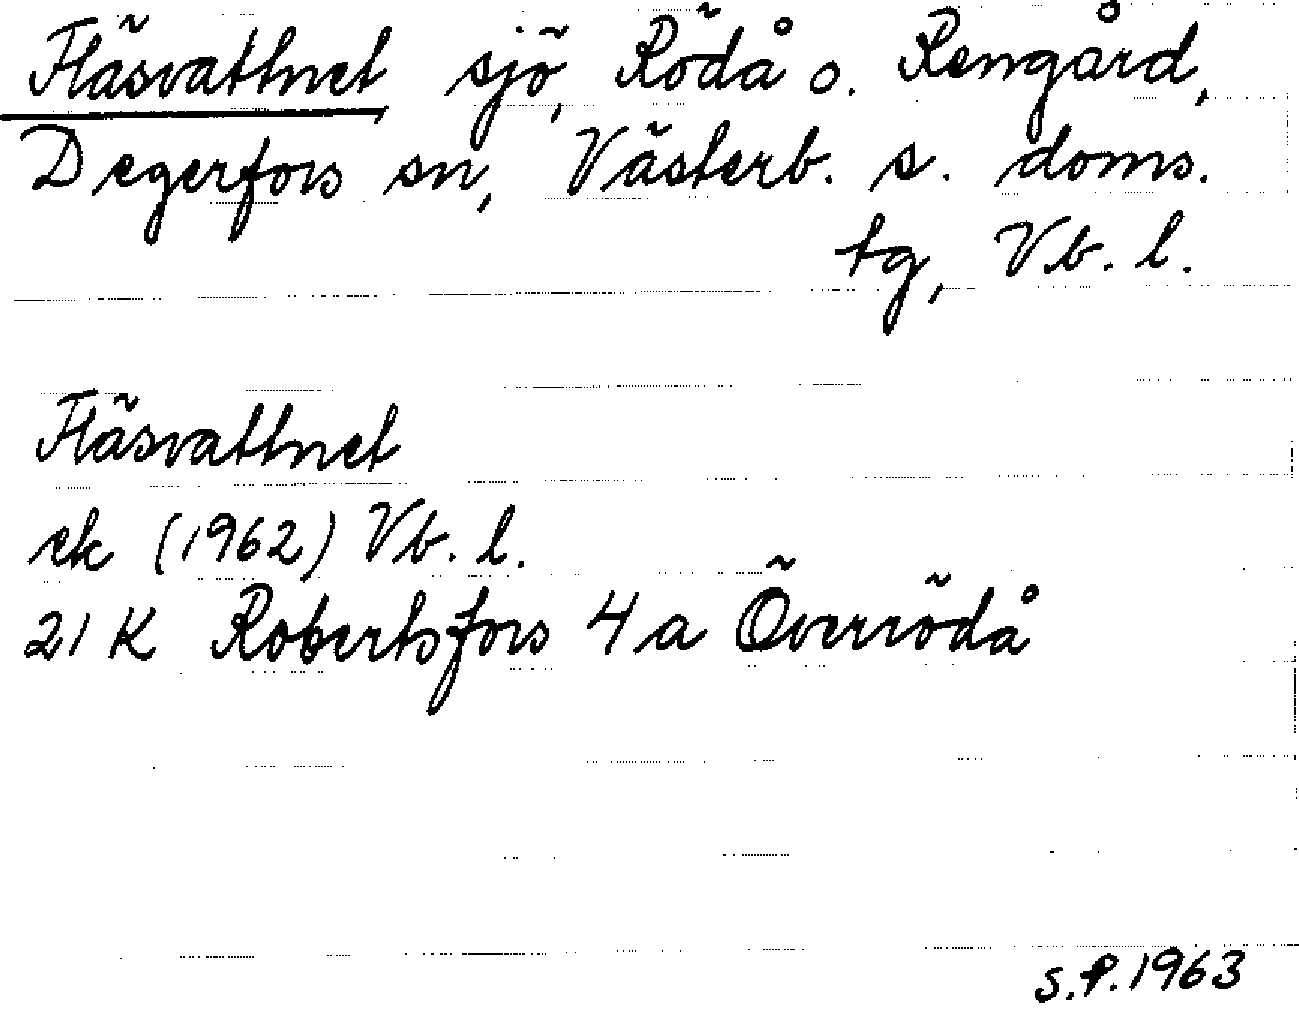 Fläsvattnet sjö, Rödå o. Rengård,
Degerfors sn, Västerb. s. doms.
tg, Vb. l.
Fläsvattnet
ek (1962) Vb. l.
21 K Robertsfors 4 a Överrödå
S.P. 1963